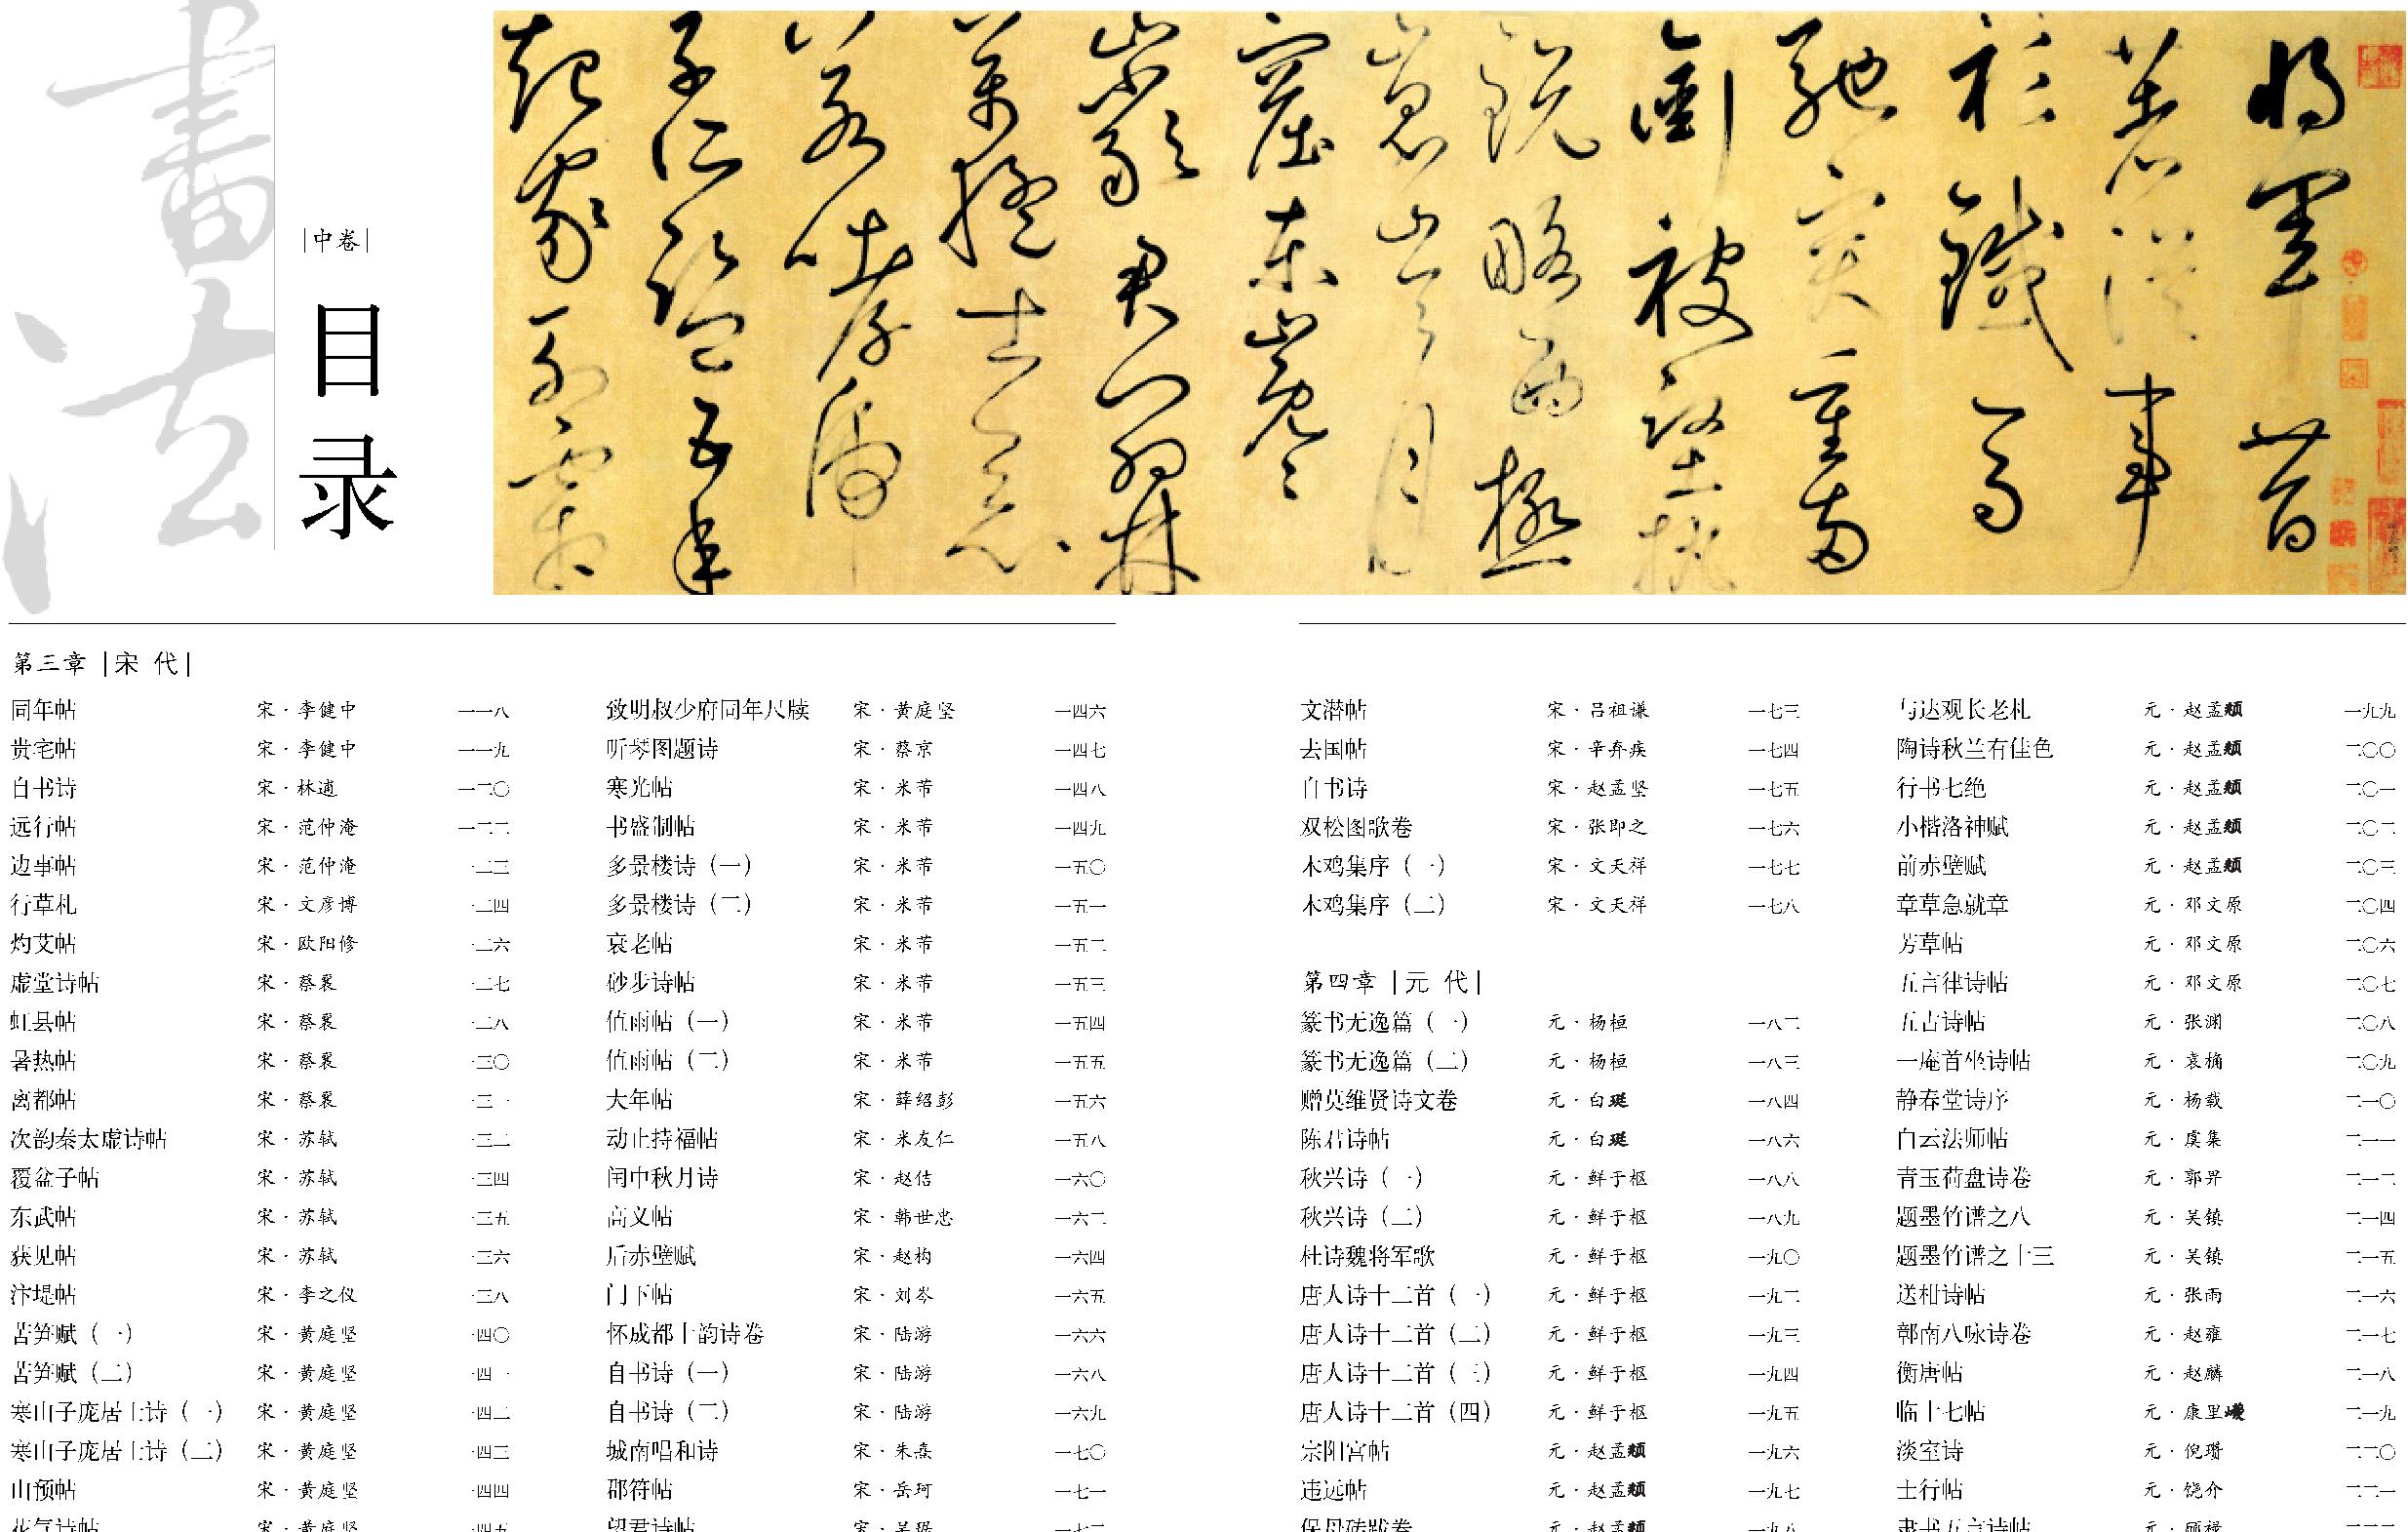 書法
中卷
目录
将军昔
著从事
衫铁马
驰突重两
衔被坚执
锐略西极
崑崙月
窟东崭
巖君门羽林
万猛士恶
若哮虎
子所监五年
起家列霜
第三章 |宋 代|
同年帖 宋·李健中 一一八
贵宅帖 宋·李健中 一一九
自书诗 宋·林逋 一二〇
远行帖 宋·范仲淹 一二二
边事帖 宋·范仲淹 一二三
行草札 宋·文彦博 一二四
灼艾帖 宋·欧阳修 一二六
虚堂诗帖 宋·蔡襄 一二七
虹县帖 宋·蔡襄 一二八
暑热帖 宋·蔡襄 一三〇
离都帖 宋·蔡襄 一三一
次韵秦太虚诗帖 宋·苏轼 一三二
覆盆子帖 宋·苏轼 一三四
东武帖 宋·苏轼 一三五
获见帖 宋·苏轼 一三六
汴堤帖 宋·李之仪 一三八
苦笋赋（一） 宋·黄庭坚 一四〇
苦笋赋（二） 宋·黄庭坚 一四一
寒山子庞居士诗（一） 宋·黄庭坚 一四二
寒山子庞居士诗（二） 宋·黄庭坚 一四三
山预帖 宋·黄庭坚 一四四
花气诗帖 宋·黄庭坚 一四五
致明叔少府同年尺牍 宋·黄庭坚 一四六
听琴图题诗 宋·蔡京 一四七
寒光帖 宋·米芾 一四八
书盛制帖 宋·米芾 一四九
多景楼诗（一） 宋·米芾 一五〇
多景楼诗（二） 宋·米芾 一五一
衰老帖 宋·米芾 一五二
砂步诗帖 宋·米芾 一五三
值雨帖（一） 宋·米芾 一五四
值雨帖（二） 宋·米芾 一五五
大年帖 宋·薛绍彭 一五六
动止持福帖 宋·米友仁 一五八
闰中秋月诗 宋·赵佶 一六〇
高义帖 宋·韩世忠 一六二
后赤壁赋 宋·赵构 一六四
门下帖 宋·刘岑 一六五
怀成都十韵诗卷 宋·陆游 一六六
自书诗（一） 宋·陆游 一六八
自书诗（二） 宋·陆游 一六九
城南唱和诗 宋·朱熹 一七〇
郡符帖 宋·岳珂 一七一
望君诗帖 宋·吴琚 一七二
文潜帖 宋·吕祖谦 一七三
去国帖 宋·辛弃疾 一七四
自书诗 宋·赵孟坚 一七五
双松图歌卷 宋·张即之 一七六
木鸡集序（一） 宋·文天祥 一七七
木鸡集序（二） 宋·文天祥 一七八
第四章 |元 代|
篆书无逸篇（一） 元·杨桓 一八二
篆书无逸篇（二） 元·杨桓 一八三
赠莫维贤诗文卷 元·白珽 一八四
陈君诗帖 元·白珽 一八六
秋兴诗（一） 元·鲜于枢 一八八
秋兴诗（二） 元·鲜于枢 一八九
杜诗魏将军歌 元·鲜于枢 一九〇
唐人诗十二首（一） 元·鲜于枢 一九二
唐人诗十二首（二） 元·鲜于枢 一九三
唐人诗十二首（三） 元·鲜于枢 一九四
唐人诗十二首（四） 元·鲜于枢 一九五
宗阳宫帖 元·赵孟頫 一九六
违远帖 元·赵孟頫 一九七
保母砖跋卷 元·赵孟頫 一九八
与达观长老札 元·赵孟頫 一九九
陶诗秋兰有佳色 元·赵孟頫 二〇〇
行书七绝 元·赵孟頫 二〇一
小楷洛神赋 元·赵孟頫 二〇二
前赤壁赋 元·赵孟頫 二〇三
章草急就章 元·邓文原 二〇四
芳草帖 元·邓文原 二〇六
五言律诗帖 元·邓文原 二〇七
五古诗帖 元·张渊 二〇八
一庵首坐诗帖 元·袁桷 二〇九
静春堂诗序 元·杨载 二一〇
白云法师帖 元·虞集 二一一
青玉荷盘诗卷 元·郭畀 二一二
题墨竹谱之八 元·吴镇 二一四
题墨竹谱之十三 元·吴镇 二一五
送柑诗帖 元·张雨 二一六
鄣南八咏诗卷 元·赵雍 二一七
衡唐帖 元·赵麟 二一八
临十七帖 元·康里巎 二一九
淡室诗 元·倪瓒 二二〇
士行帖 元·饶介 二二一
隶书五言诗帖 元·顾禄 二二二